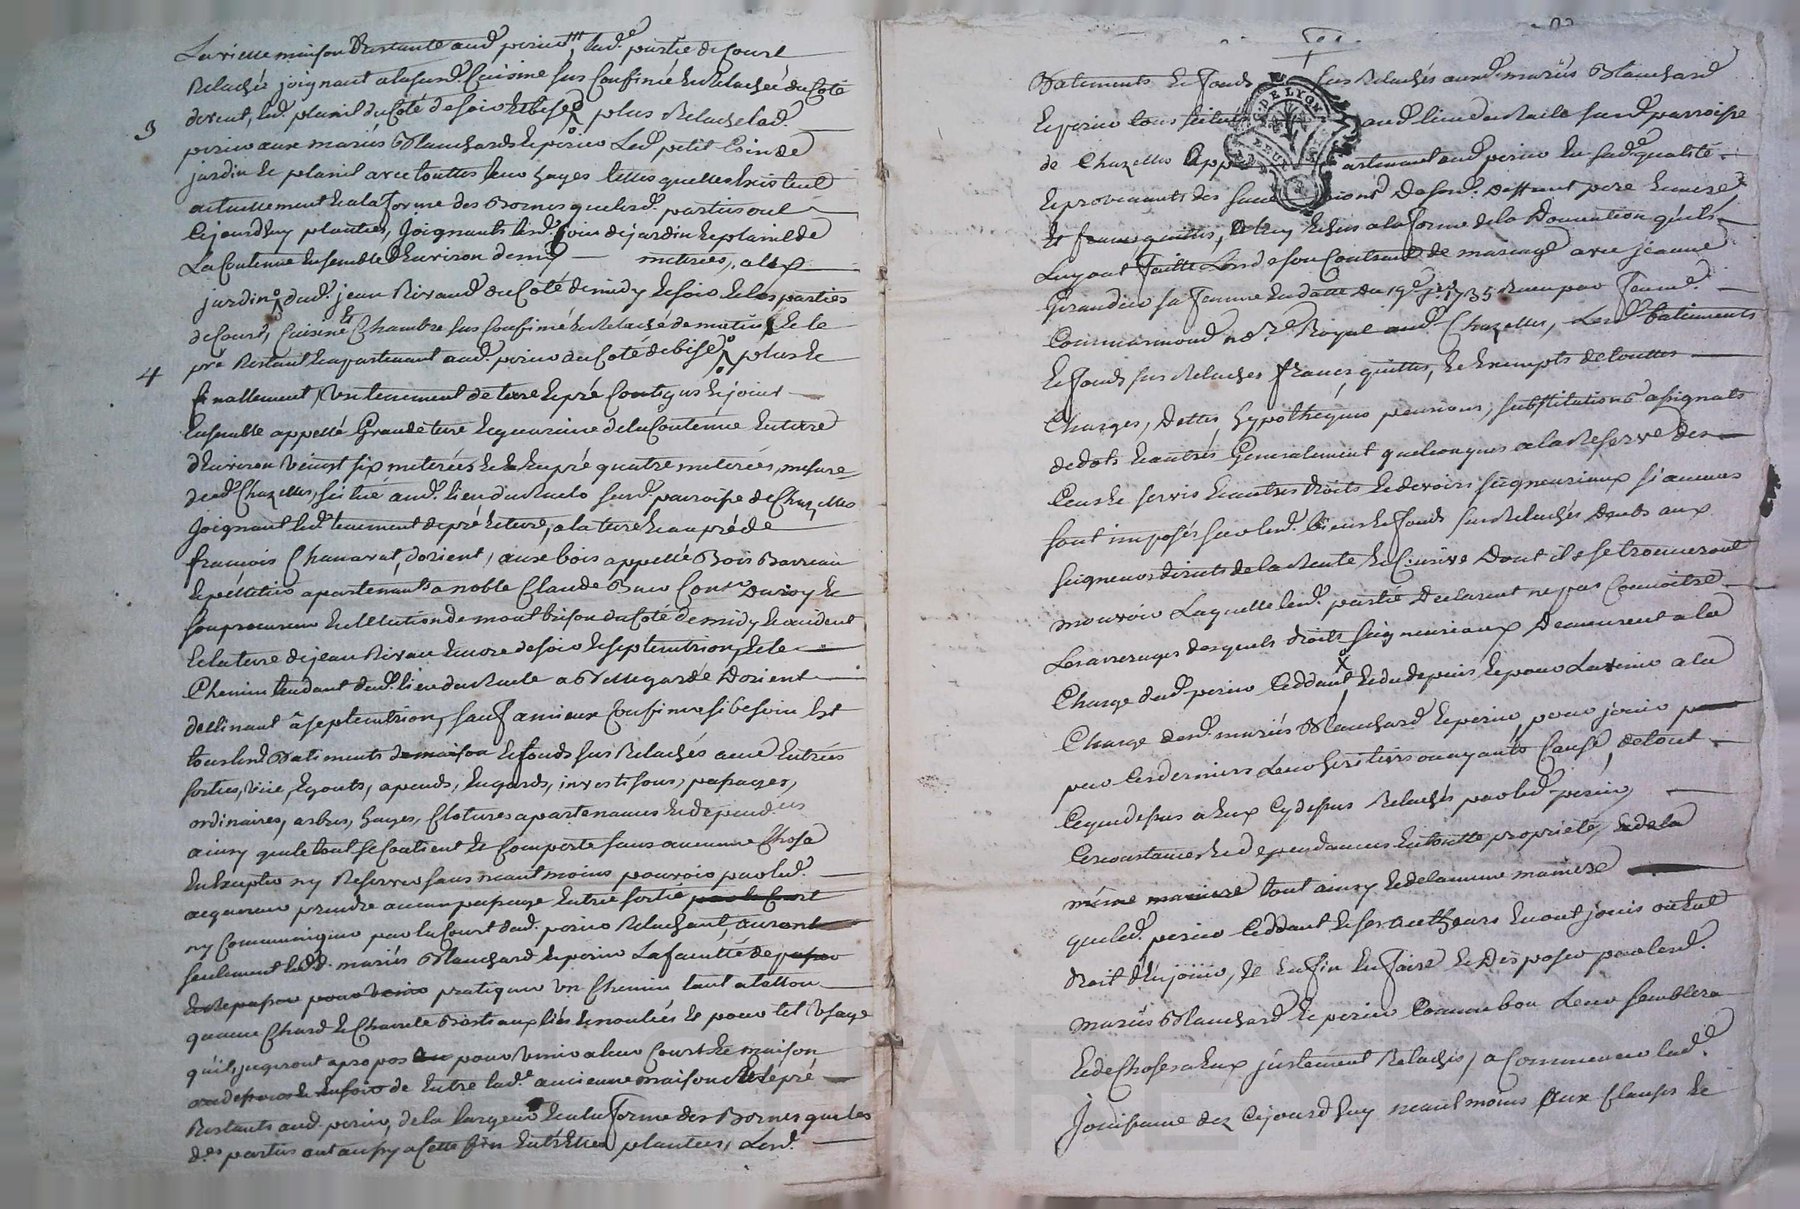 La vieille maison Restante aud. perrin, lad. partie de Court
Relachée joignant a la susd. Cuisine sus Confinée & Relachée du Coté
dorient, led. plasnil du Coté de soir & bise plus Relache lad.
3
perrin aux mariés Blanchard & perrin Led. petit Coin de
jardin & plasnil avec touttes leurs hayes telles quelles Existent
actuellement & a la forme des Bornes que lesd. parties ont
Cejourdhuy plantées, Joignants lesd. Coin de jardin & plasnil de
La Contenue Ensemble d'Environ demy metérée, aux
jardin dud. jean Rivaud du Coté de midy & soir & les parties
de Court, Cuisine & Chambre sus Confiné & Relaché de matin & le
pré Restant & apartenant aud. perrin du Coté de bise, plus &
4
finallement, Un tenement de terre & pré Contigus & joint
Ensemble appellé Grande terre & garenne de la Contenue En terre
d'Environ Veingt six meterées & En pré quatre meterées, mesure
dud. Chazelles, scitué aud. lieu du Maile susd. parroisse de Chazelles
Joignant led. tenement de pré & terre, a la terre & au pré de
francois Chanavat, dorient, au bois appellé Bois Barreau
apartenant a noble Claude Conr. du roy &
son procureur En l'Election de montbrison du Coté de midy & occident
& la terre de jean Rivau Encore de soir & septentrion, & le
Chemin tendant dud. lieu du Maile a Bellegarde Dorient
declinant à septentrion, sauf a mieux Confiner si besoin Est
tous lesd. Batiments de maison & fonds sus Relachés avec Entrées
sorties, Vüe, Egouts, apends, Engards, investisons, passages,
ordinaires, arbres, hayes, Clotures apartenances & dépend.ces
ainsy que le tout se Contient & Comporte sans aucunne Chose
En Excepter ny Reserver sans neantmoins pouvoir par led.
acquereur prendre aucun passage Entrée sortie par la Court
ny Communiquer par la Court dud. perrin Relachant, auront
seulement lesd. mariés Blanchard & perrin La faculté de passer
pratiquer Un Chemin tant a talon
quavec Chard & Charrette Bestiaux liés & non liés & pour tel Usage
qu'ils jugeront apropos pour Venir a leur Court & maison
de Entre lad. ancienne maison & le pré
Restants aud. perrin, de la largeur & a la forme des Bornes que les
d.es parties ont aussy a Cette fin Entr'Elles plantées, Lesd.
Batiments & fonds sus Relachés auxd. mariés Blanchard
& perrin tous scitués aud. lieu du Maile susd. parroisse
de Chazelles apartenant aud. perrin En sad. qualité
& provenants des de sond. deffunt pere & mere
a la forme de la Donnation qu'ils
Luy ont faitte Lors de son Contract de mariage avec jeanne
Giraudier sa femme En datte du 19e jer 1735 Recu par feu me.
Courmarmond no.re Royal aud. Chazelles, Lesd. batiments
& fonds sus Relachés francs, quittes, & Exempts de touttes
Charges, Dettes, hypothéques pensions, substitutions assignats
de dots & autrés Generalement quelconques a la Reserve des
Cens & servis & autres droits & devoirs seigneuriaux si aucuns
sont imposés sur lesd. biens & fonds sus Relachés Deubs aux
seigneurs directs de la Rente & Censive Dont ils se trouveront
mouvoir Laquelle lesd. partie Declarent ne pas Connoitre
Les arrerages desquels droits seigneuriaux Demeurent a la
Charge dud. perrin Ceddant, & du depuis & pour Lavenir a la
Charge desd. mariés Blanchard & perrin, pour jouir
par Ces derniers Leurs heritiers ou ayants Cause, de tout
Ce que dessus a Eux Cydessus Relachés par led. perrin,
Circonstances & dependances En toutte propriete, & de la
même maniere tout ainsy & de la meme maniere
que led. perrin Ceddant & ses autheurs En ont jouis ou Eut
droit d'En jouir, & Enfin En faire & Disposer par lesd.
mariés Blanchard & perrin Comme bon Leur semblera
& de Choses a Eux justement Relachés, a Commencer lad.
Jouissance dez Cejourdhuy neantmoins aux Clauses &
G. DE LYON
DEUX